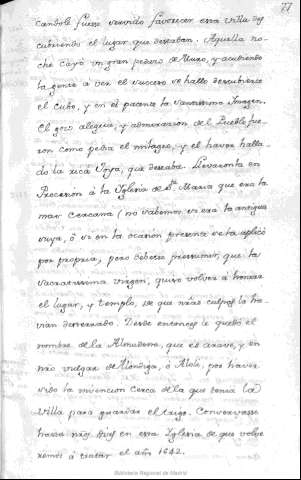 77
candole fuese servido favorecer esa villa des
cubriendo el lugar que deseaban. Aquella no-
che cayó un gran pedazo de Muro, y acudiendo
la gente à ver el suceso se hallo descubierto
el Cubo, y en él patente la Santissima Imagen.
El gozo alegria, y admiracion del Pueblo fue-
ron como pedia el milagro, y el haver halla-
do la rica Joya, que deseaba. Llevaronla en
Procesion à la Yglesia de Sta Maria que era la
mas Cercana (no sabemos si era la antigua
suya, ò si en la ocasion presente se la aplicò
por propria, pero debese presumir, que la
sacratissima virgen, quiso volver à honrar
el lugar, y templo, de que nras culpas la ha-
vian desterrado. Desde entonces le quedó el
nombre de la Almudena, que es arave, y en
nro vulgar de Alondiga, ò Alolí, por haver
sido la invencion Cerca de la que tenia la
Villa para guardar el trigo. Conservase
hasta nros dias en esta Yglesia de que volve
remos à tratar el año 1642.
Biblioteca Regional de Madrid